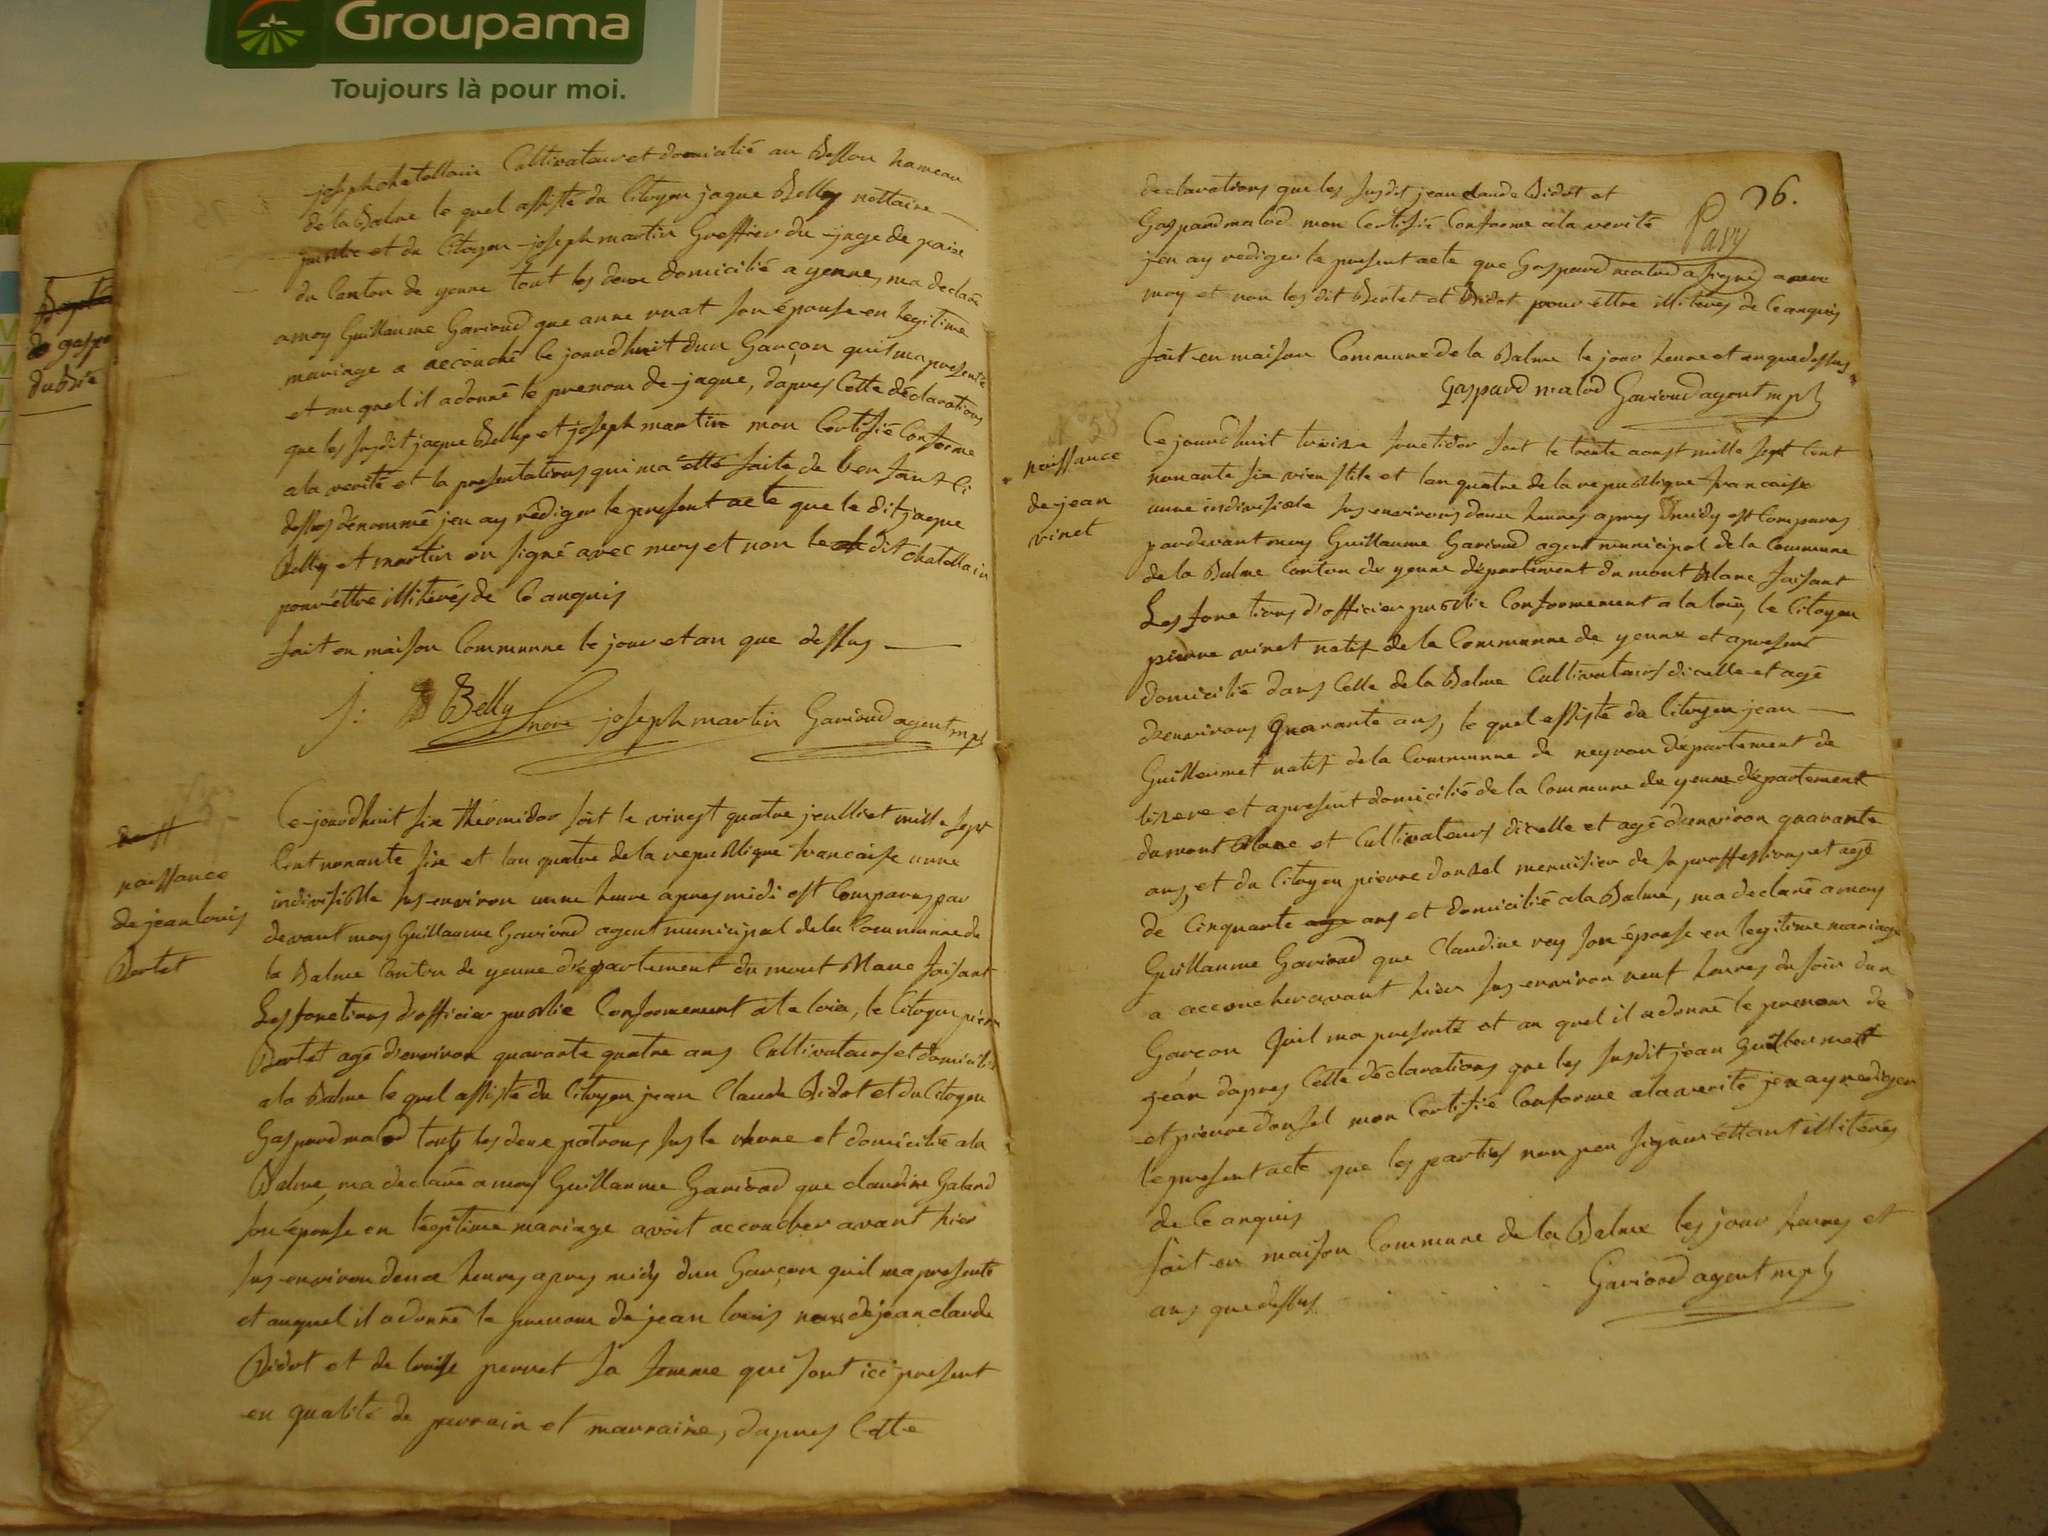 Groupama
Toujours là pour moi.
de gaspa
dubDié
joseph chatellain Cultivateur et domicilié au Besson hameau
de la Balme le quel assisté du Citoyen jaque Belly nottaire
publie et du Citoyen joseph martin Greffier du juge de paix
du Canton de yenne tout les deux domicilié a yenne, ma declaré
a moy Guillaume Garioud que anne vuat son épouse en legitime
mariage a accouché ce jourdhuit dun Garçon quil ma presenté
et au quel il a donné le prenom de jaque, dapres Cette déclarations
que les susdit jaque Belly et joseph martin mon Certifié Conforme
a la verité et la presentations qui ma etté faite de lenfant Ci
dessus dénommé jen ay rédiger le present acte que le dit jaque
Belly et martin on signé avec moy et non le dit chatellain
pour éttre illiterés de Ce anquis
fait en maison Commune le jour et an que dessus
J: Belly nore joseph martin Garioud agent mpl
naissance
de jean louis
Bertet
Ce jourdhuit six thérmidor soit le vingt quatre jeulliet mille sept
Cent nonante six et lan quatre de la republique francaise unne
indivisible sus environ unne heure apres midi est Comparus par
devant moy Guillaume Garioud agent municipal de la Commune de
la Balme Canton de yenne département du mont Blanc faisant
Les fonctions d'officier publie Conformement a la loix, le Citoyen pierre
Bertet agé denviron quarante quatre ans Cultivateurs et domicilié
a la Balme le quel assisté du Citoyen jean Claude Bidot et du Citoyen
Gaspard malod touts les deux patrons sus le rhone et domicilié a la
Balme, ma declaré a moy Guillaume Garioud que claudine Galand
son épouse en légitime mariage avoit accoucher avant hier
sus environ deux heures apres midy dun Garçon quil ma presenté
et auquel il a donné le prenom de jean louis de jean claude
Bidot et de louise pernet sa femme qui sont ici present
en qualité de parrain et marraine, dapres Cette
36.
declarations que les susdit jean claude Bidot et
Gaspard malod mon Certifié Conforme a la verité
jen ay rediger le present acte que Gaspard malod a signé avec
moy et non les dit Bertet et Bidot pour éttre illiterés de Ce anquis
fait en maison Commune de la Balme le jour heure et an que dessus
Gaspard malod Garioud agent mpl
naissance
de jean
vinet
Ce jourdhuit treize fructidor soit le trente aoust mille sept Cent
nonante six vieu stile et lan quatre de la republique francaise
unne indivisible sus environs deux heures apres midy est Comparus
pardevant moy Guillaume Garioud agent municipal de la Commune
de la Balme Canton de yenne département du mont Blanc faisant
Les fonctions d'officier publie Conformement a la loix, le Citoyen
pierre vinet natif de la Commune de yenne et apresent
domicilié dans Celle de la Balme Cultivateurs dicelle et agé
denvirons quarante ans, le quel assisté du Citoyen jean
Guillermet natif de la Commune de neyron département de
lizere et apresent domicilié de la Commune de yenne département
du mont Blanc et Cultivateurs dicelle et agé denviron quarante
ans, et du Citoyen pierre donzel menuisier de sa proffessions et agé
de Cinquante ans et domicilié a la Balme, ma declaré a moy
Guillaume Garioud que Claudine rey son épouse en legitime mariage
a accoucher avant hier sus environ neuf heures du soir dun
Garçon quil ma presenté et au quel il a donné le prenom de
jean dapres Cette déclarations que les susdit jean Guillermet
et pierre donsel mon Certifié Conforme a la verité jen ay rediger
le present acte que les parties non peu signer ettant illiterés
de Ce anquis
fait en maison Commune de la Balme les jour heures et
ans que dessus
Garioud agent mpl